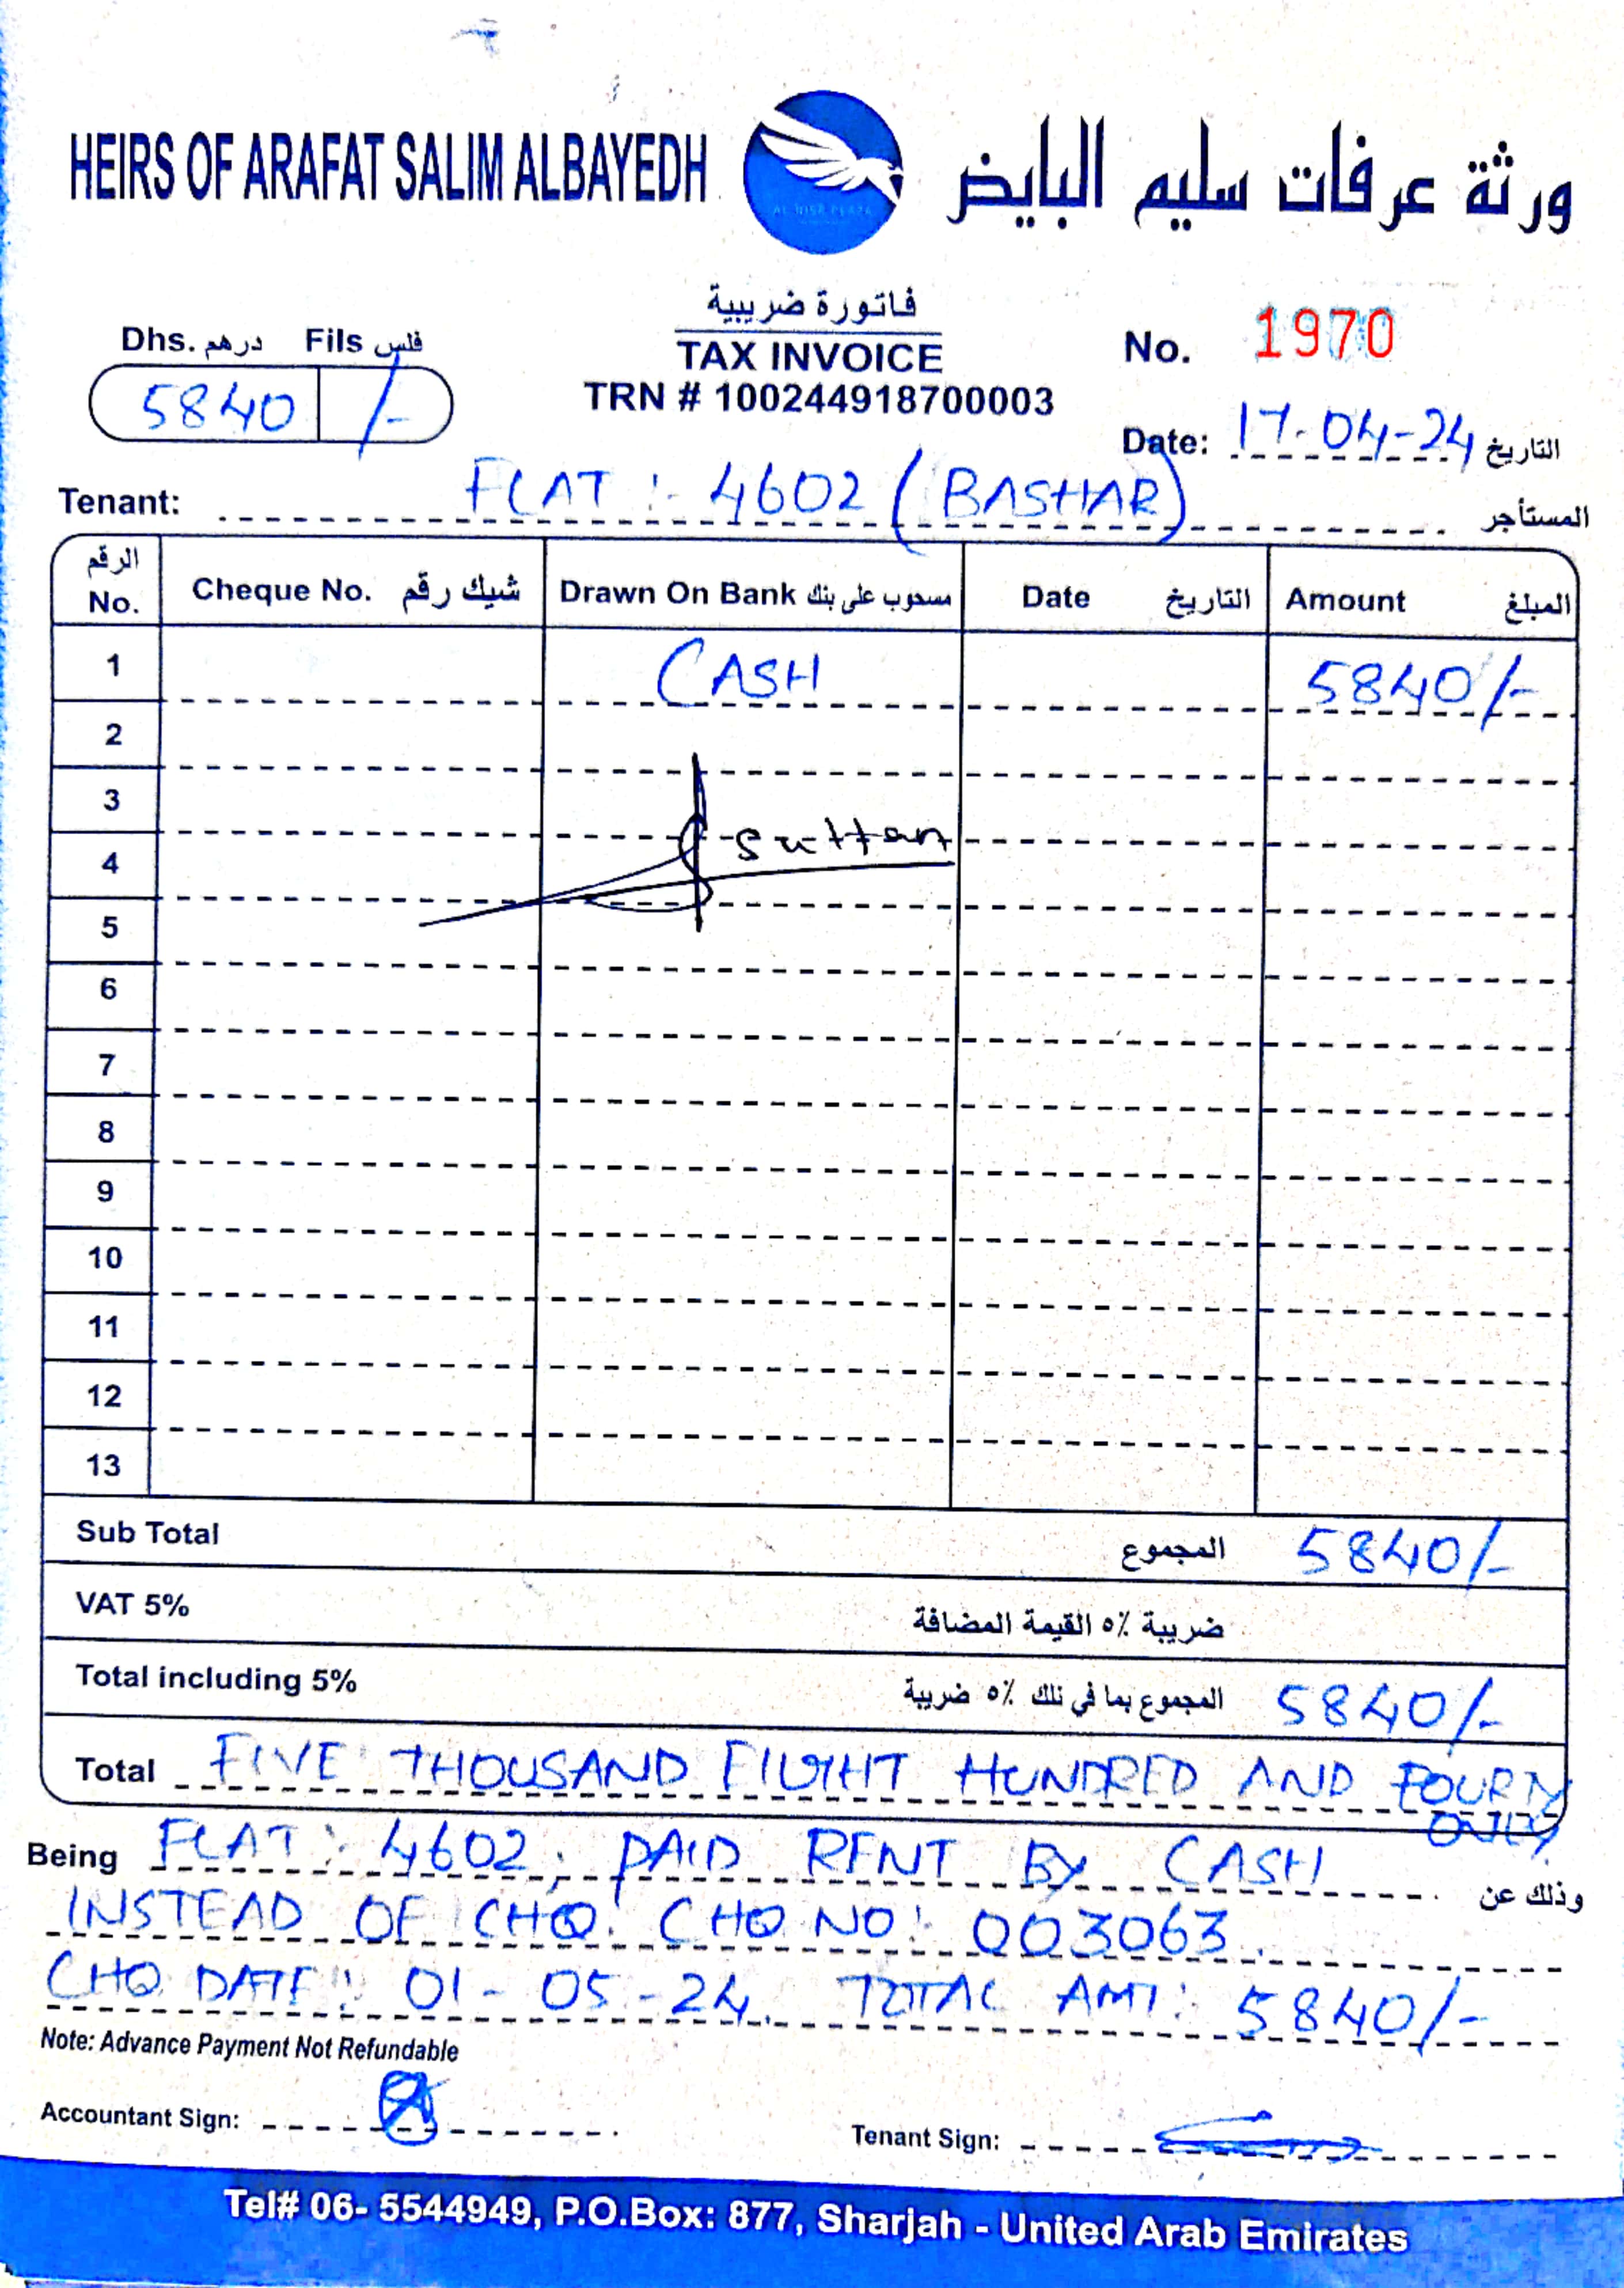 HEIRS OF ARAFAT SALIM ALBAYEDH
ورثة عرفات سليم البايض
AL NISR PLAZA
فاتورة ضريبية
TAX INVOICE
TRN # 100244918700003
Dhs. درهم Fils فلس
5840 /-
No. 1970
Date: 17-04-24 التاريخ
Tenant: FLAT :- 4602 (BASHAR) المستأجر
الرقم No. Cheque No. شيك رقم Drawn On Bank مسحوب على بنك Date التاريخ Amount المبلغ
1 CASH 5840/-
2
3
4 Sultan
5
6
7
8
9
10
11
12
13
Sub Total المجموع 5840/-
VAT 5% ضريبة ٥٪ القيمة المضافة
Total including 5% المجموع بما في تلك ٥٪ ضريبة 5840/-
Total FIVE THOUSAND EIGHT HUNDRED AND FOURTY
ONLY
Being FLAT: 4602, PAID RENT BY CASH وذلك عن
INSTEAD OF CHQ. CHQ NO: 003063.
CHQ DATE: 01-05-24. TOTAL AMT: 5840/-
Note: Advance Payment Not Refundable
Accountant Sign:
Tenant Sign:
Tel# 06- 5544949, P.O.Box: 877, Sharjah - United Arab Emirates